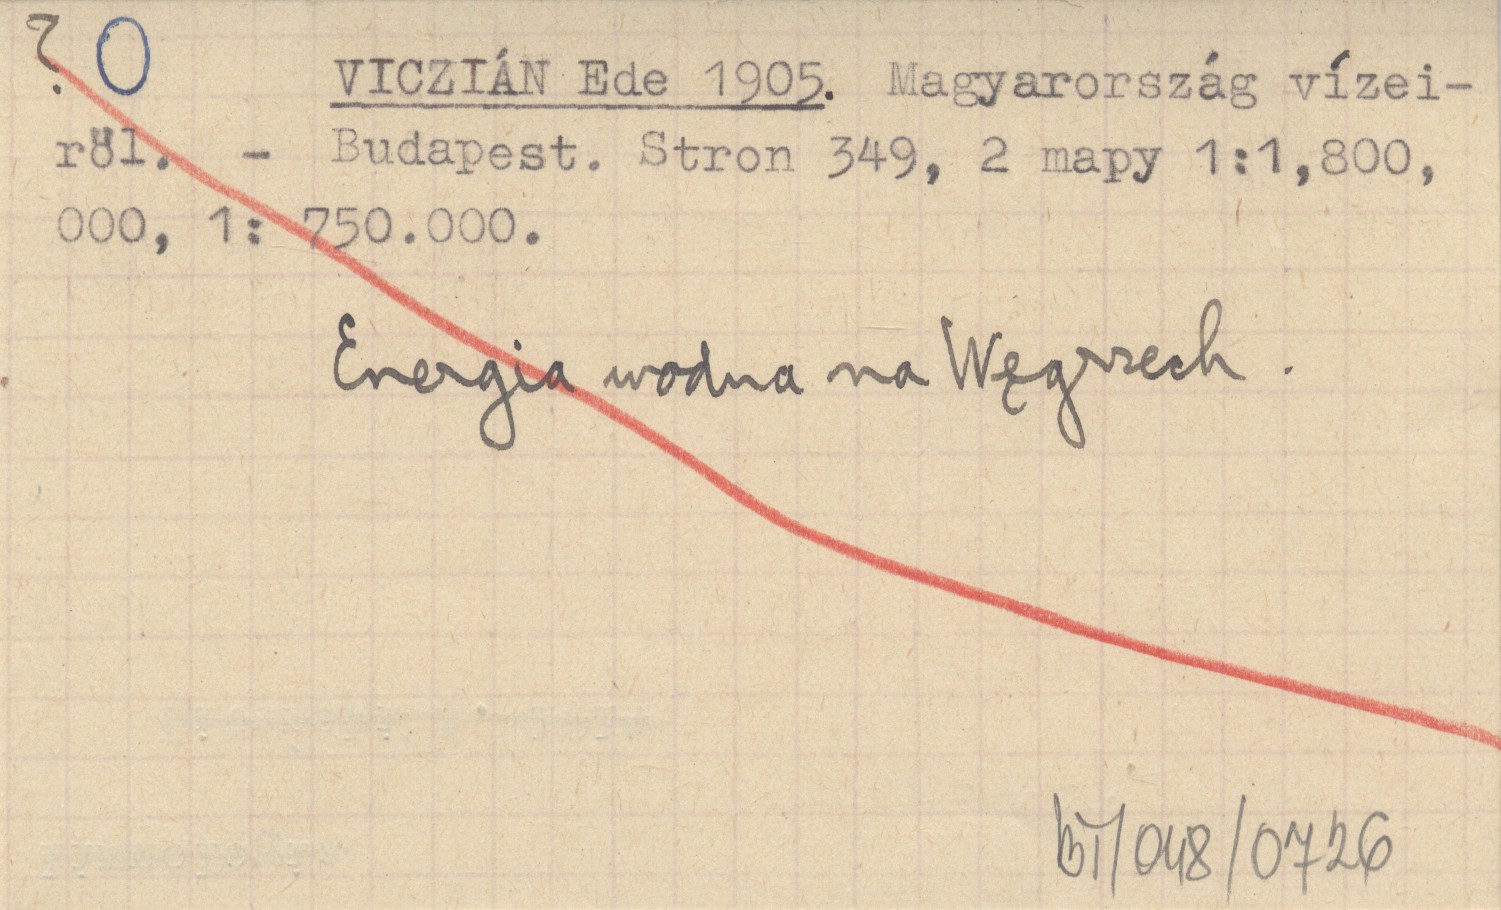 ? O VICZIÁN Ede 1905. Magyarország vízei-
röl. - Budapest. Stron 349, 2 mapy 1:1,800,
000, 1: 750.000.
Energia wodna na Węgrzech.
BT/048/0726